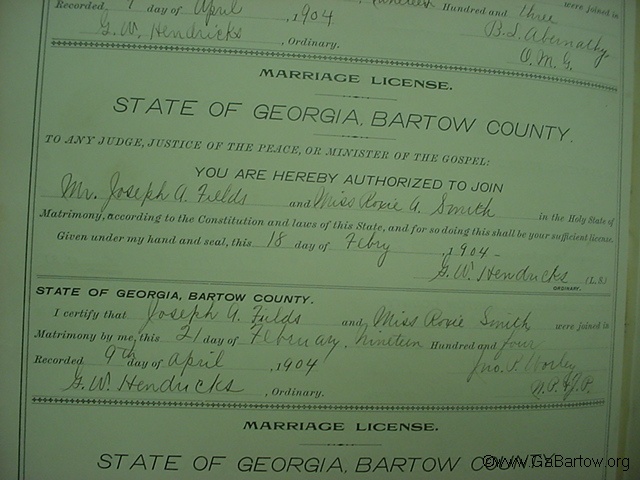 Nineteen Hundred and three were joined in
Recorded 9 day of April, 1904. B. S. Abernathy
G. W. Hendricks, Ordinary. O. M. G.
MARRIAGE LICENSE.
STATE OF GEORGIA, BARTOW COUNTY.
TO ANY JUDGE, JUSTICE OF THE PEACE, OR MINISTER OF THE GOSPEL:
YOU ARE HEREBY AUTHORIZED TO JOIN
Mr. Joseph A. Fields and Miss Roxie A. Smith in the Holy State of
Matrimony, according to the Constitution and laws of this State, and for so doing this shall be your sufficient license.
Given under my hand and seal, this 18 day of Febry, 1904-
G. W. Hendricks (L. S.)
ORDINARY.
STATE OF GEORGIA, BARTOW COUNTY.
I certify that Joseph A. Fields and Miss Roxie Smith were joined in
Matrimony by me, this 21 day of February, nineteen Hundred and four
Recorded 9th day of April, 1904 Jno. P. Worley
G. W. Hendricks, Ordinary. N. P. & J. P.
MARRIAGE LICENSE.
STATE OF GEORGIA, BARTOW COUNTY.
©www.GaBartow.org